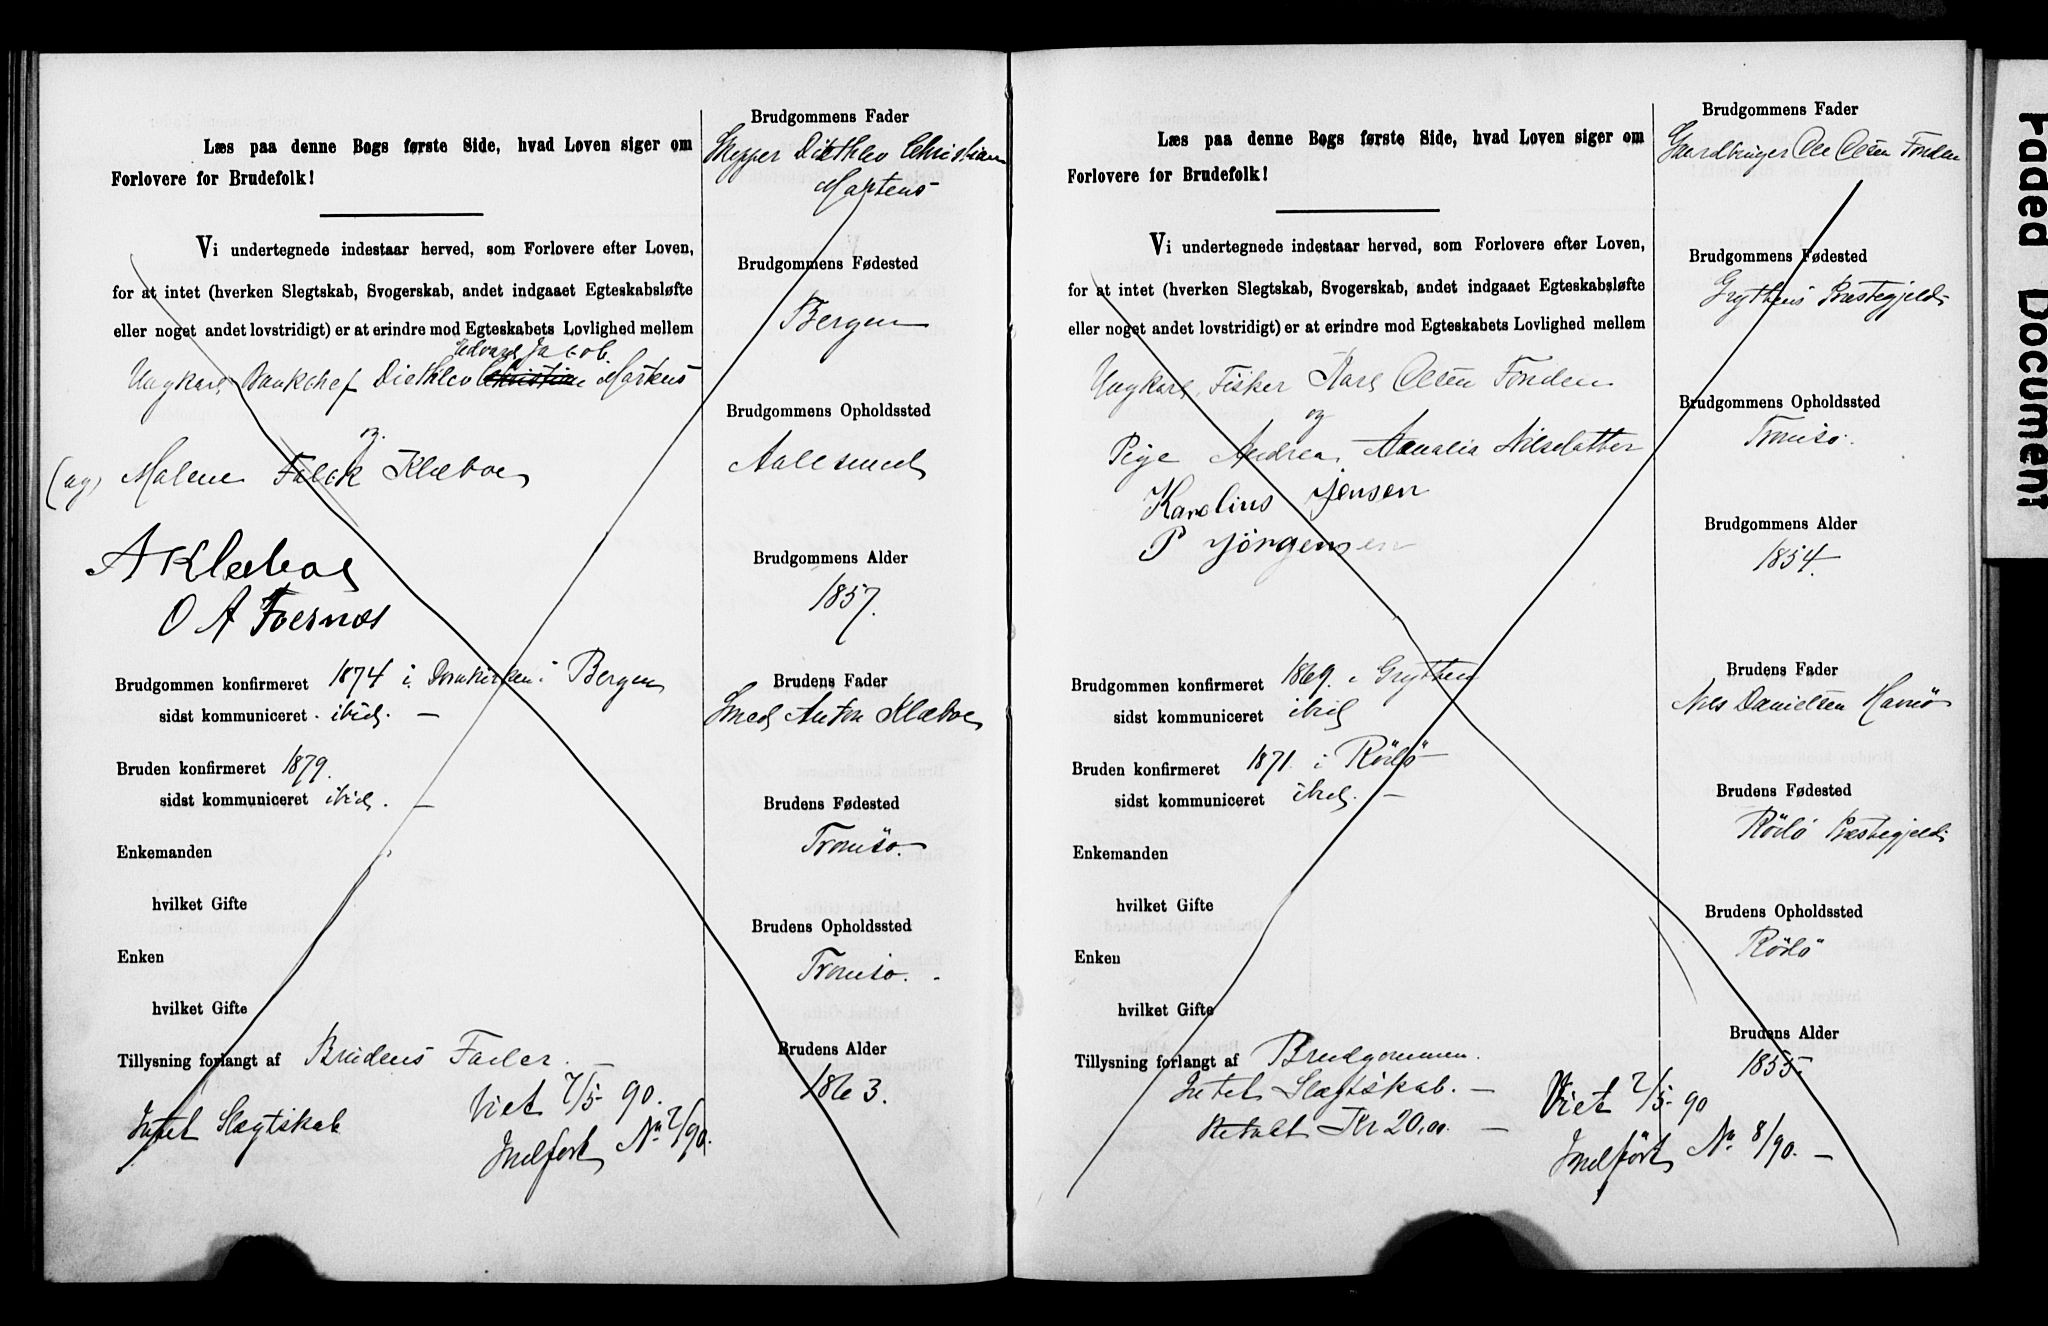 Læs paa denne Bogs første Side, hvad Loven siger om
Forlovere for Brudefolk!
Vi undertegnede indestaar herved, som Forlovere efter Loven,
for at intet (hverken Slegtskab, Svogerskab, andet indgaaet Egteskabsløfte
eller noget andet lovstridigt) er at erindre mod Egteskabets Lovlighed mellem
Edvard Jacob
Ungkarl Bankchef Diethlev Christian Martens
og
(ug) Malene Falck Klæboe
A Klæboe
O A Foesnæs
Brudgommen konfirmeret 1874 i Domkirken i Bergen
sidst kommuniceret ibid. —
Bruden konfirmeret 1879.
sidst kommuniceret ibid. —
Enkemanden
hvilket Gifte
Enken
hvilket Gifte
Tillysning forlangt af Brudens Fader. —
Intet Slægtskab
Viet 7/5 90.
Indført No 7/90.
Brudgommens Fader
Skipper Diethlev Christian
Martens
Brudgommens Fødested
Bergen
Brudgommens Opholdssted
Aalesund
Brudgommens Alder
1857.
Brudens Fader
Smed Anton Klæboe
Brudens Fødested
Tromsø.
Brudens Opholdssted
Tromsø.
Brudens Alder
1863.
Læs paa denne Bogs første Side, hvad Loven siger om
Forlovere for Brudefolk!
Vi undertegnede indestaar herved, som Forlovere efter Loven,
for at intet (hverken Slegtskab, Svogerskab, andet indgaaet Egteskabsløfte
eller noget andet lovstridigt) er at erindre mod Egteskabets Lovlighed mellem
Ungkarl, Fisker Karl Olsen Fonden
og
Pige Andrea Amalia Nilsdatter
Karolius Jensen
P Jörgensen
Brudgommen konfirmeret 1869. i Grytten
sidst kommuniceret ibid
Bruden konfirmeret 1871. i Rödö
sidst kommuniceret ibid. —
Enkemanden
hvilket Gifte
Enken
hvilket Gifte
Tillysning forlangt af Brudgommen.
Intet Slægtskab. —
Betalt Kr 20,00. —
Viet 7/5 90
Indført No 8/90. —
Brudgommens Fader
Gaardbruger Ole Olsen Fonden
Brudgommens Fødested
Gryttens Præstegjeld
Brudgommens Opholdssted
Tromsø.
Brudgommens Alder
1854.
Brudens Fader
Nils Danielsen Havnø
Brudens Fødested
Rödö Præstegjeld
Brudens Opholdssted
Rödö
Brudens Alder
1855.
Faded Document